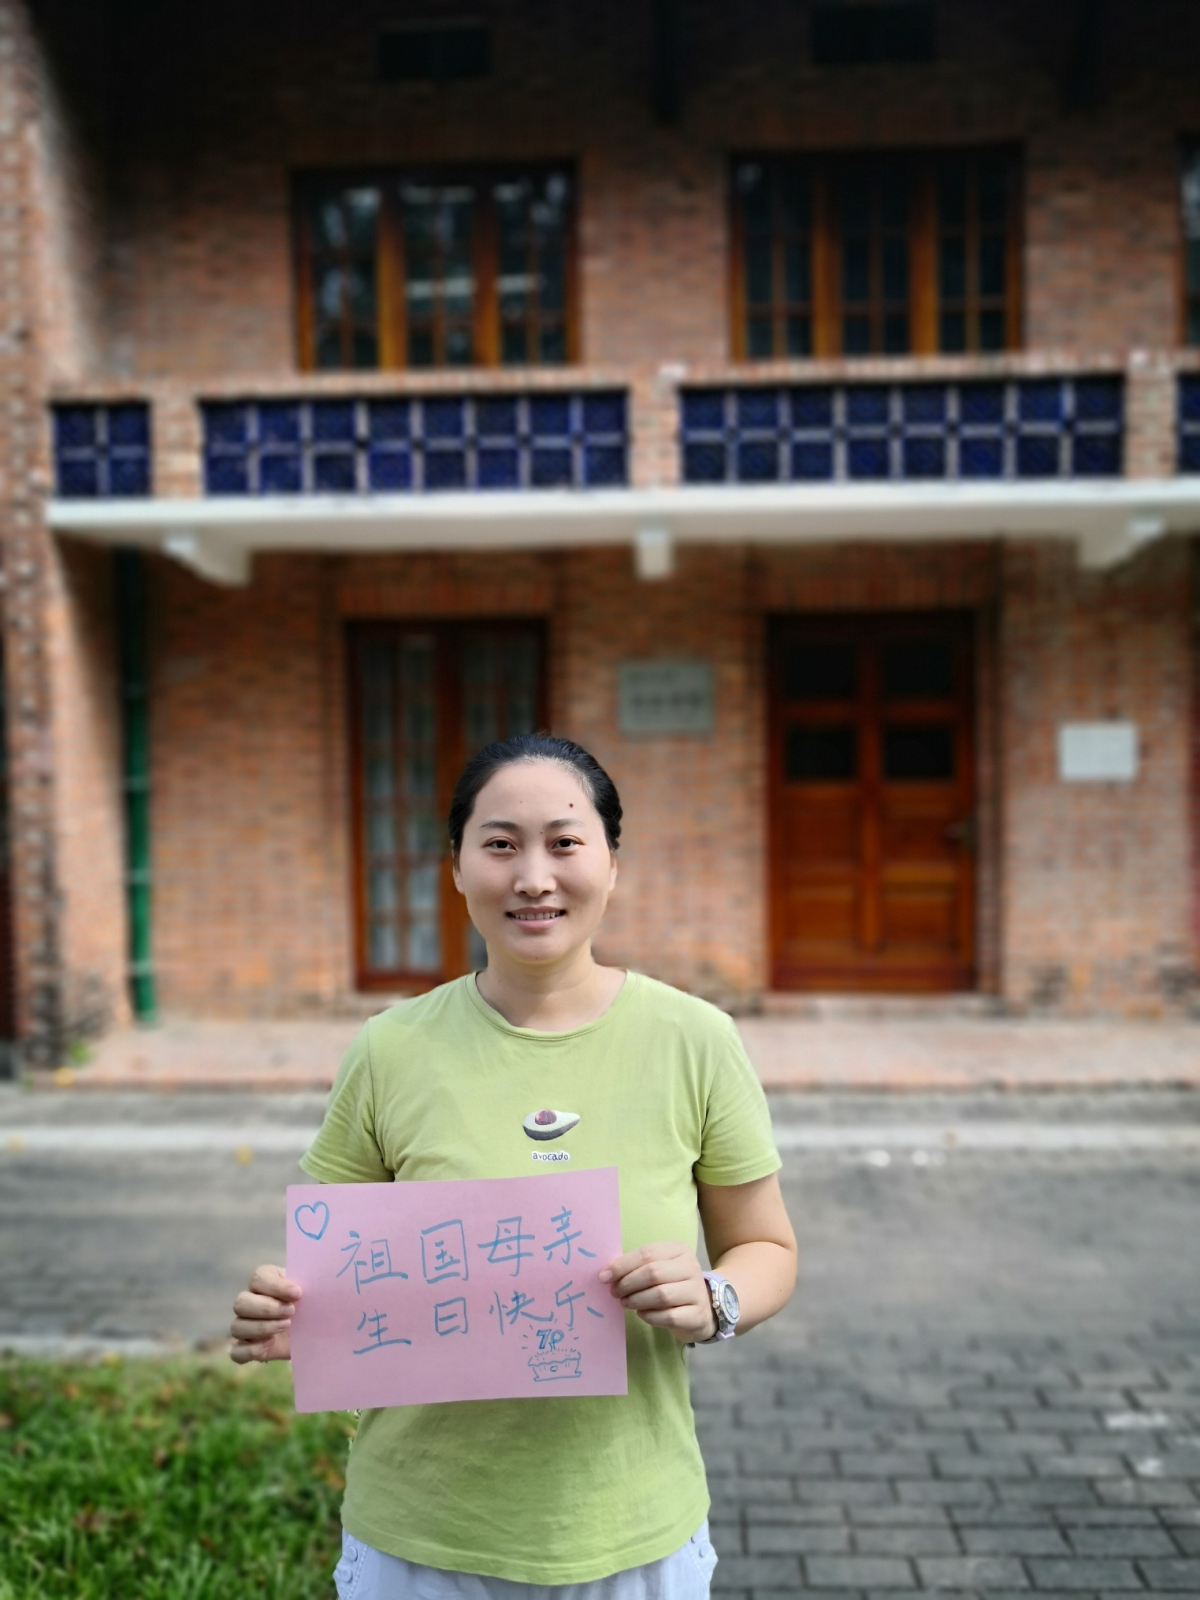 avocado
祖国母亲
生日快乐